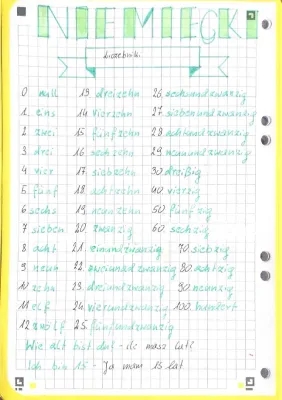 NIEMIECKI
Liczebniki
0 null 13 dreizehn 26. sechsundzwanzig
1. eins 14 vierzehn 27. siebenundzwanzig
2. zwei 15 fünfzehn 28 achtundzwanzig
3. drei 16 sechzehn 29 neunundzwanzig
4. vier 17 siebzehn 30 dreißig
5. fünf 18 achtzehn 40. vierzig
6 sechs 19. neunzehn 50. fünfzig
7 sieben 20. zwanzig 60. sechzig
8 acht 21. einundzwanzig 70. siebzig
9 neun 22. zweiundzwanzig 80. achtzig
10 zehn 23 dreiundzwanzig 90. neunzig
11 elf 24. vierundzwanzig 100. hundert
12 zwölf 25. fünfundzwanzig
Wie alt bist du? - ile masz lat?
Ich bin 15 - Ja mam 15 lat